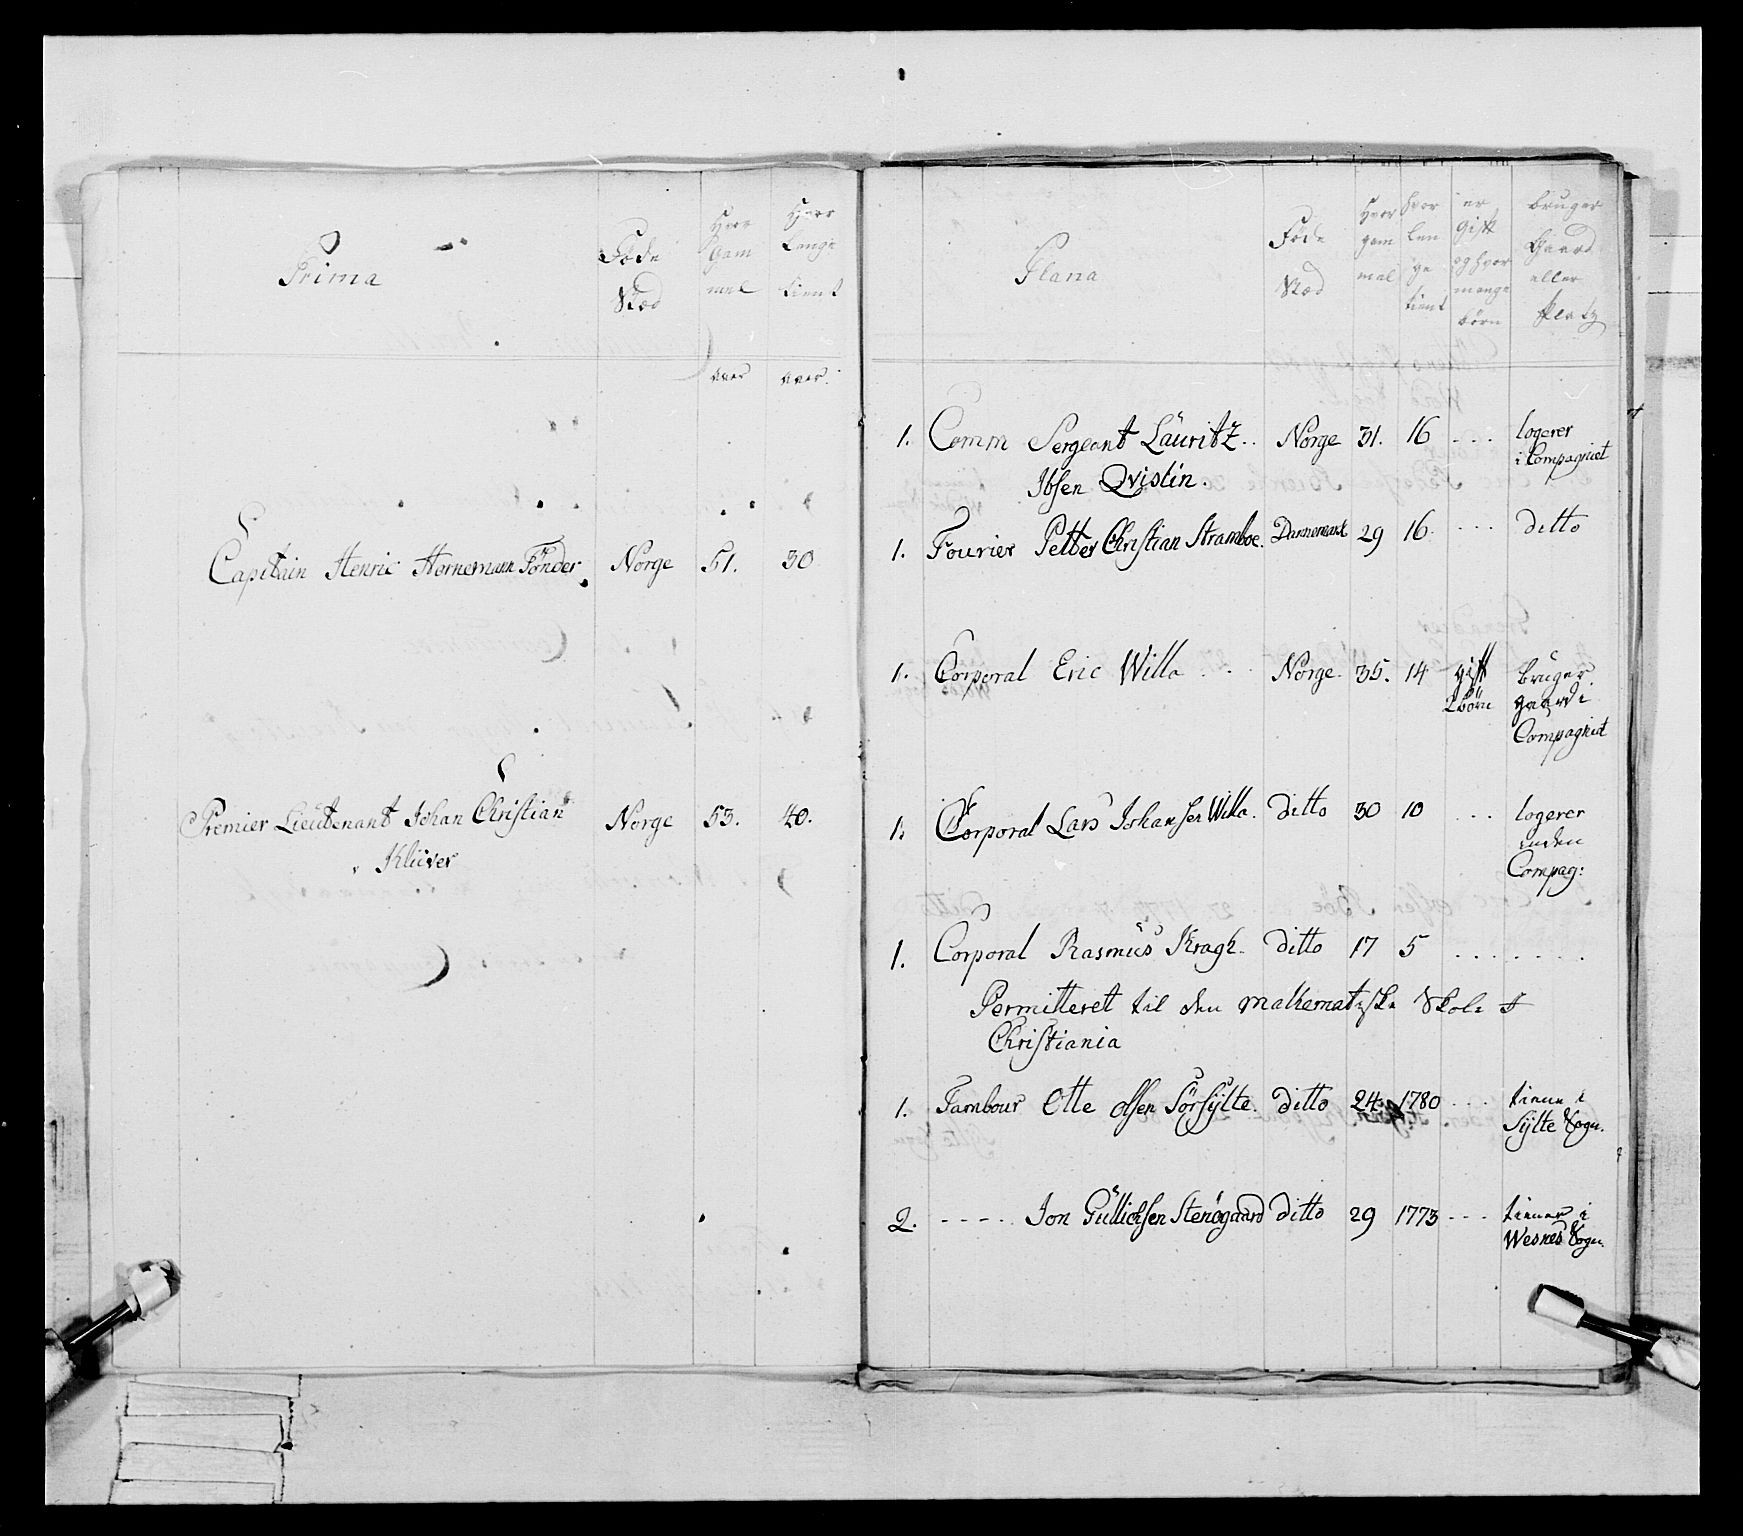 Prima
Føde
Stæd
Hvor
Gam
mel
Hvor
Længe
tient
aar
aar.
Capitain Henric Hornemann Tönder
Norge
51.
30
Premier Lieutenant Johan Christian
Klüver
Norge
53.
40.
Plana
Føde
Stæd
Hvor
gam
mel
hvor
len
ge
tient
er
Gift
og hvor
mange
børn
bruger
Gaard
eller
Platz
1. Comm Sergeant Lauritz .. Norge 31. 16 ... logerer
i Compagniet
Ibsen Qvistin.
1. Fourier Petter Christian Stramboe. Dannemark 29 16. ... ditto
1. Corporal Eric Willa .. Norge. 35. 14 gift bruger
2 börn gaard i
Compagniet
1. Corporal Lars Johansen Willa. ditto 30 10 ... logerer
inden
Compag:
1. Corporal Rasmus Kragh. ditto 17 5 .......
Permitteret til den mathematiske Skole i
Christiania
1. Tambour Otte olsen Sörsylte. ditto 24. 1780 ... tienner i
Sylte Sogn.
2. ----- Jon Gullichsen Stenögaard ditto 29 1773 ... tienner i
Wesnes Sogn.